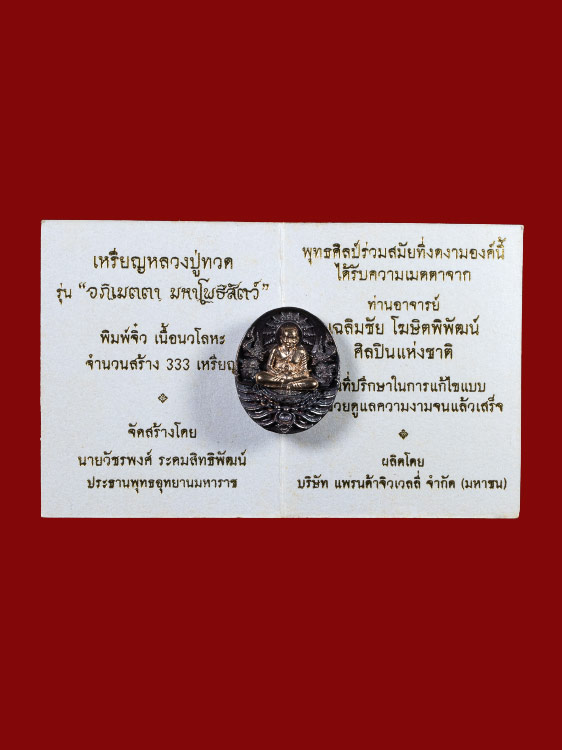 เหรียญหลวงปู่ทวด
รุ่น “อภิเมตตา มหาโพธิสัตว์”
พิมพ์จิ๋ว เนื้อนวโลหะ
จำนวนสร้าง 333 เหรียญ
จัดสร้างโดย
นายวัชรพงศ์ ระดมสิทธิพัฒน์
ประธานพุทธอุทยานมหาราช
พุทธศิลป์ร่วมสมัยที่งดงามองค์นี้
ได้รับความเมตตาจาก
ท่านอาจารย์
เฉลิมชัย โฆษิตพิพัฒน์
ศิลปินแห่งชาติ
ที่ปรึกษาในการแก้ไขแบบ
ดูแลความงามจนแล้วเสร็จ
ผลิตโดย
บริษัท แพรนด้าจิวเวลลี่ จำกัด (มหาชน)